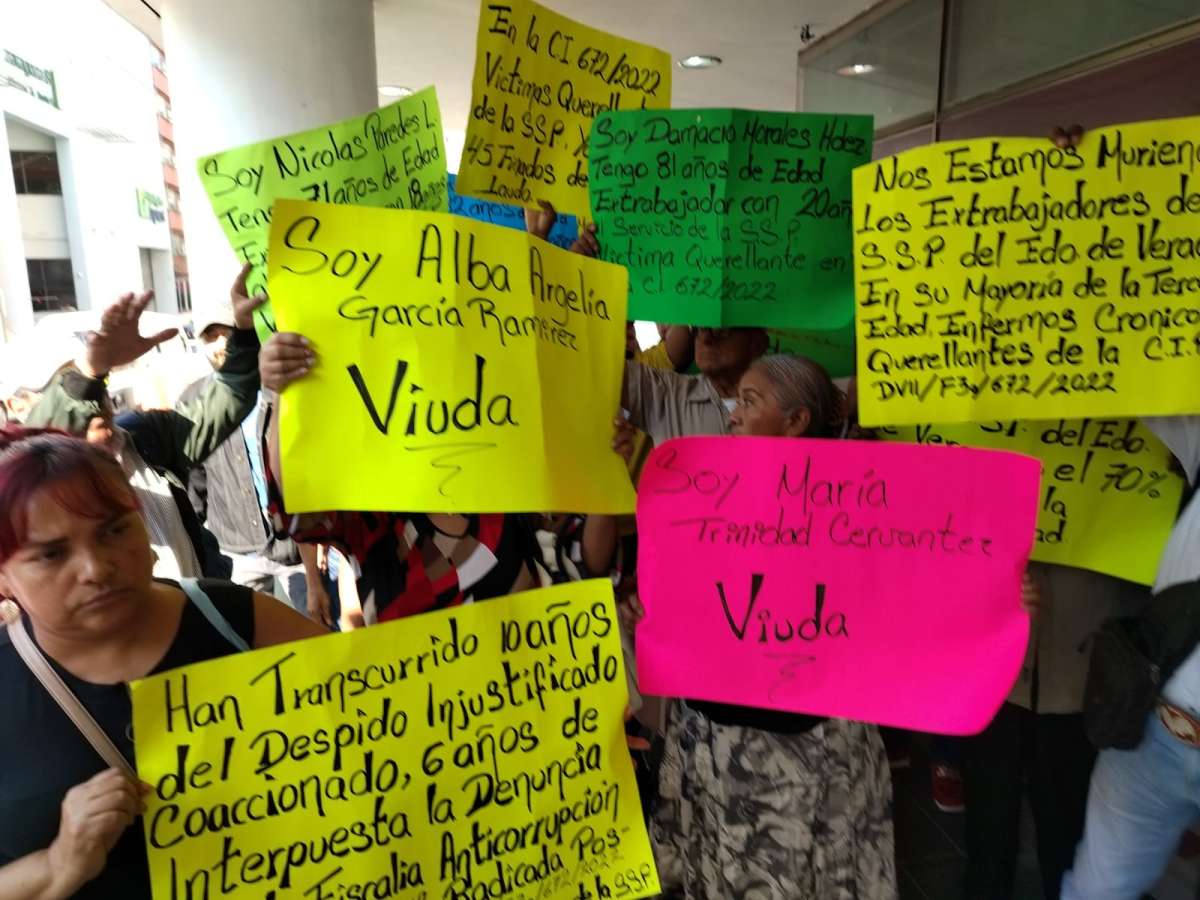 En la C.I 672/2022
Víctimas Querellant
de la S.S.P.
45 Finados de
Lauda
Soy Nicolas Paredes L.
71 años de Edad
Soy Damacio Morales Hdez
Tengo 81 años de Edad
Extrabajador con 20 añ
al Servicio de la S.S.P.
Victima Querellante en
el 672/2022
Nos Estamos Murien
Los Extrabajadores de
S.S.P. del Edo de Vera
En Su Mayoría de la Terc
Edad, Enfermos Cronico
Querellantes de la C.I.
DVII/F3/672/2022
Soy Alba Argelia
García Ramirez
Viuda
Soy María
Trinidad Cervantez
Viuda
del Edo.
el 70%
la
ad
Han Transcurrido 10 años
del Despido Injustificado
Coaccionado, 6 años de
Interpuesta la Denuncia
Fiscalia Anticorrupción
Radicada Pos-
672/2022
de la S.S.P.